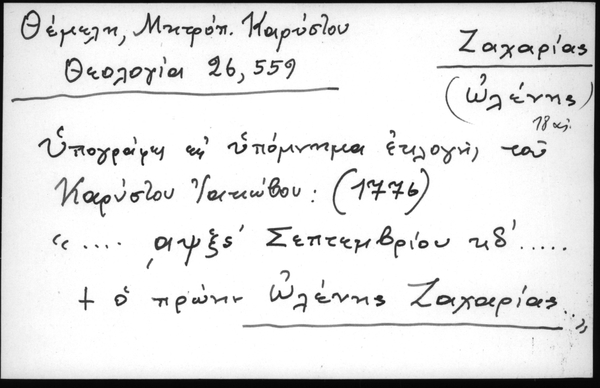 Θέμελη, Μητρόπ. Καρύστου
Θεολογία 26, 559
Ζαχαρίας
(Ὠλένης)
18 αἰ.
Ὑπογράφει εἰς ὑπόμνημα ἐκλογῆς τοῦ
Καρύστου Ἰακώβου: (1776)
".... ͵αψξς' Σεπτεμβρίου κδ'.....
+ ὁ πρώην Ὠλένης Ζαχαρίας..."